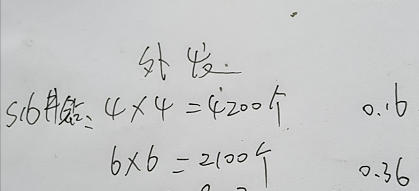 外发
S16钻: 4×4=4200个 0.16
6×6=2100个 0.36